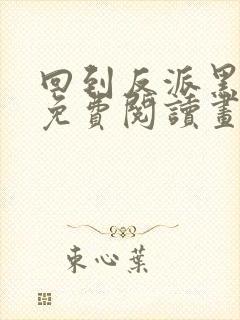 回到反派黑
免費閱讀畫
束心葉